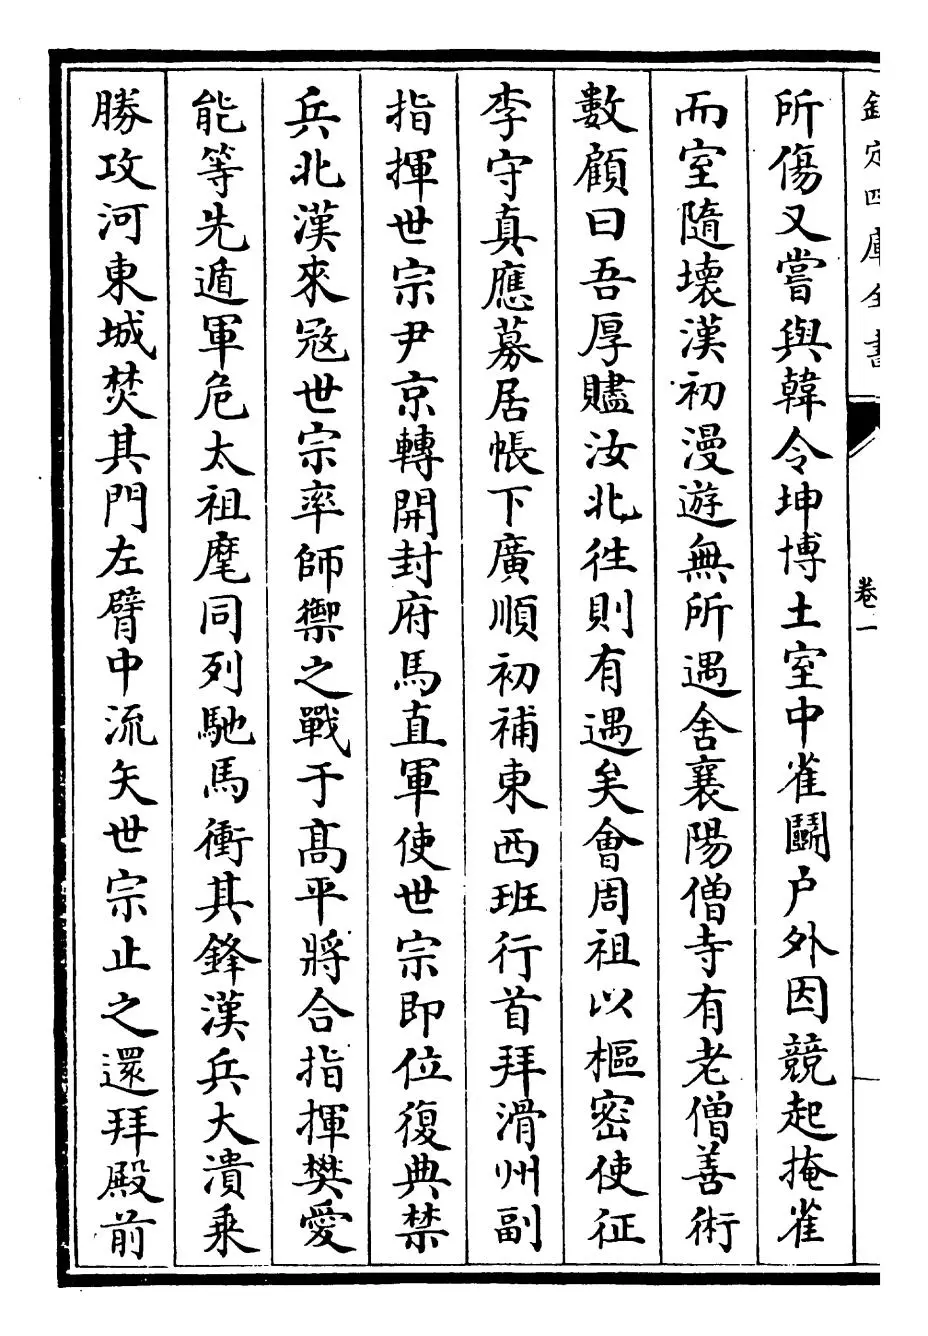 欽定四庫全書
卷一
所傷又嘗與韓令坤博土室中雀鬭户外因競起掩雀
而室隨壞漢初漫遊無所遇舍襄陽僧寺有老僧善術
數顧曰吾厚贐汝北徃則有遇矣會周祖以樞密使征
李守真應募居帳下廣順初補東西班行首拜滑州副
指揮世宗尹京轉開封府馬直軍使世宗即位復典禁
兵北漢來冦世宗率師禦之戰于髙平將合指揮樊愛
能等先遁軍危太祖麾同列馳馬衝其鋒漢兵大潰乗
勝攻河東城焚其門左臂中流矢世宗止之還拜殿前